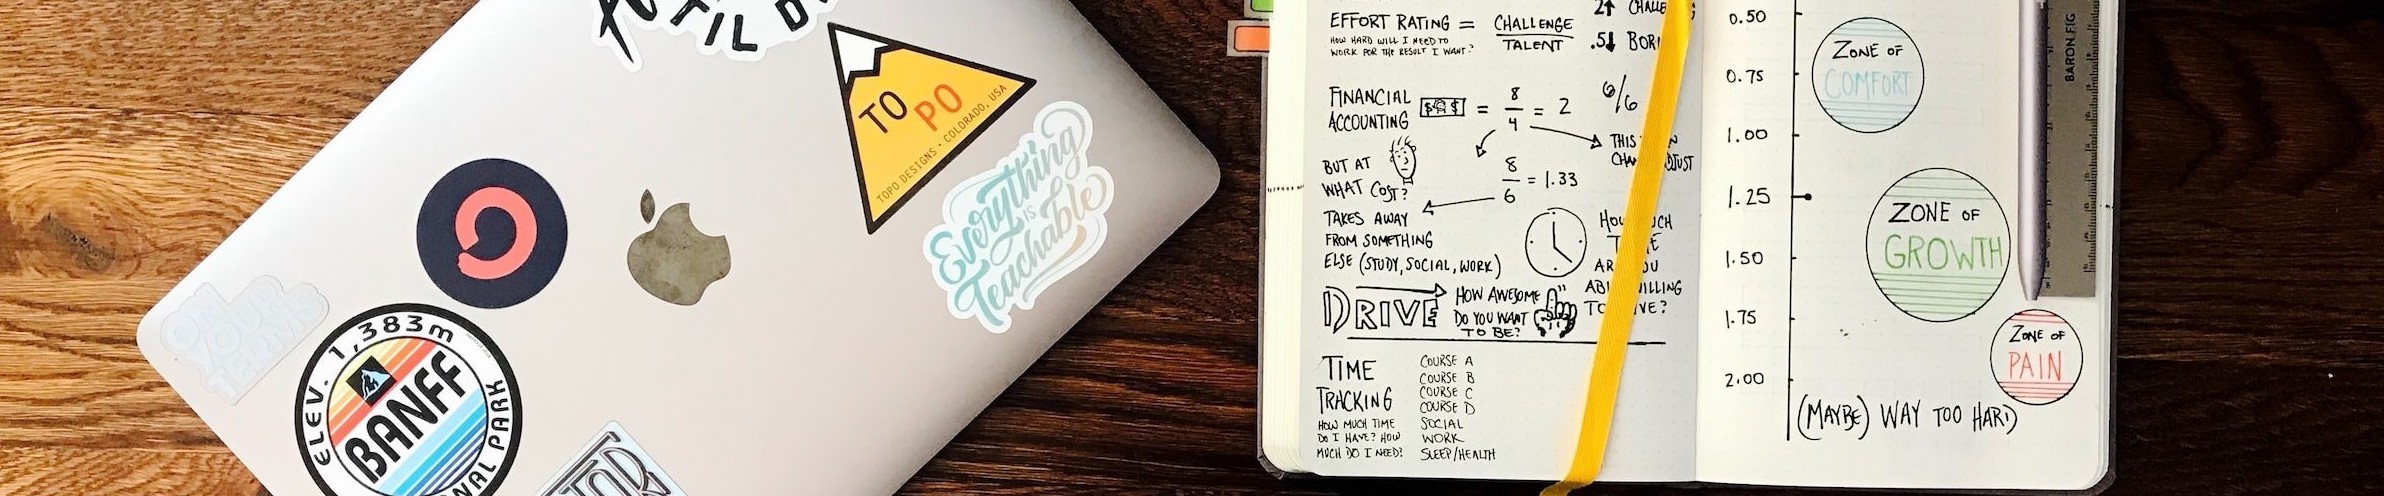 TIL
TO
PO
TOPO DESIGNS • COLORADO, USA
Everything
IS
Teachable
ON
YOUR
TERMS
ELEV. 1,383m
BANFF
PARK
EFFORT RATING = CHALLENGE
TALENT
HOW HARD WILL I NEED TO
WORK FOR THE RESULT I WANT?
2↑
.5↓
FINANCIAL
ACCOUNTING
$ $ = 8/4 = 2
6/6
THIS
BUT AT
WHAT COST?
8/6 = 1.33
TAKES AWAY
FROM SOMETHING
ELSE (STUDY, SOCIAL, WORK)
DRIVE
HOW AWESOME
DO YOU WANT
TO BE?
TIME
TRACKING
HOW MUCH TIME
DO I HAVE? HOW
MUCH DO I NEED?
COURSE A
COURSE B
COURSE C
COURSE D
SOCIAL
WORK
SLEEP/HEALTH
0.50
0.75
1.00
1.25
1.50
1.75
2.00
ZONE OF
COMFORT
ZONE OF
GROWTH
ZONE OF
PAIN
(MAYBE) WAY TOO HARD
BARON FIG